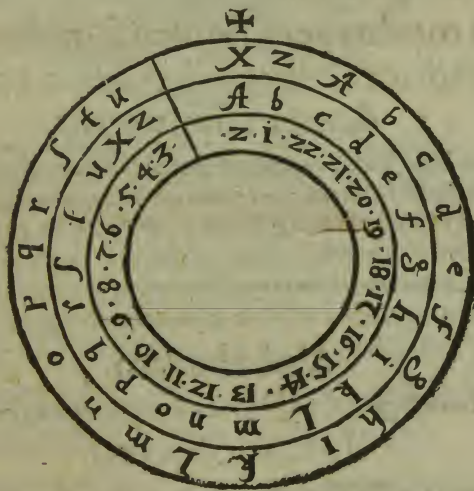 ✠
X z A b c d e f g h i k L m n o p q r ſ t u
A b c d e f g h i k L m n o p q r ſ t u X z
·2·1·22·21·20·19·18·17·16·15·14·13·12·11·10·9·8·7·6·5·4·3·